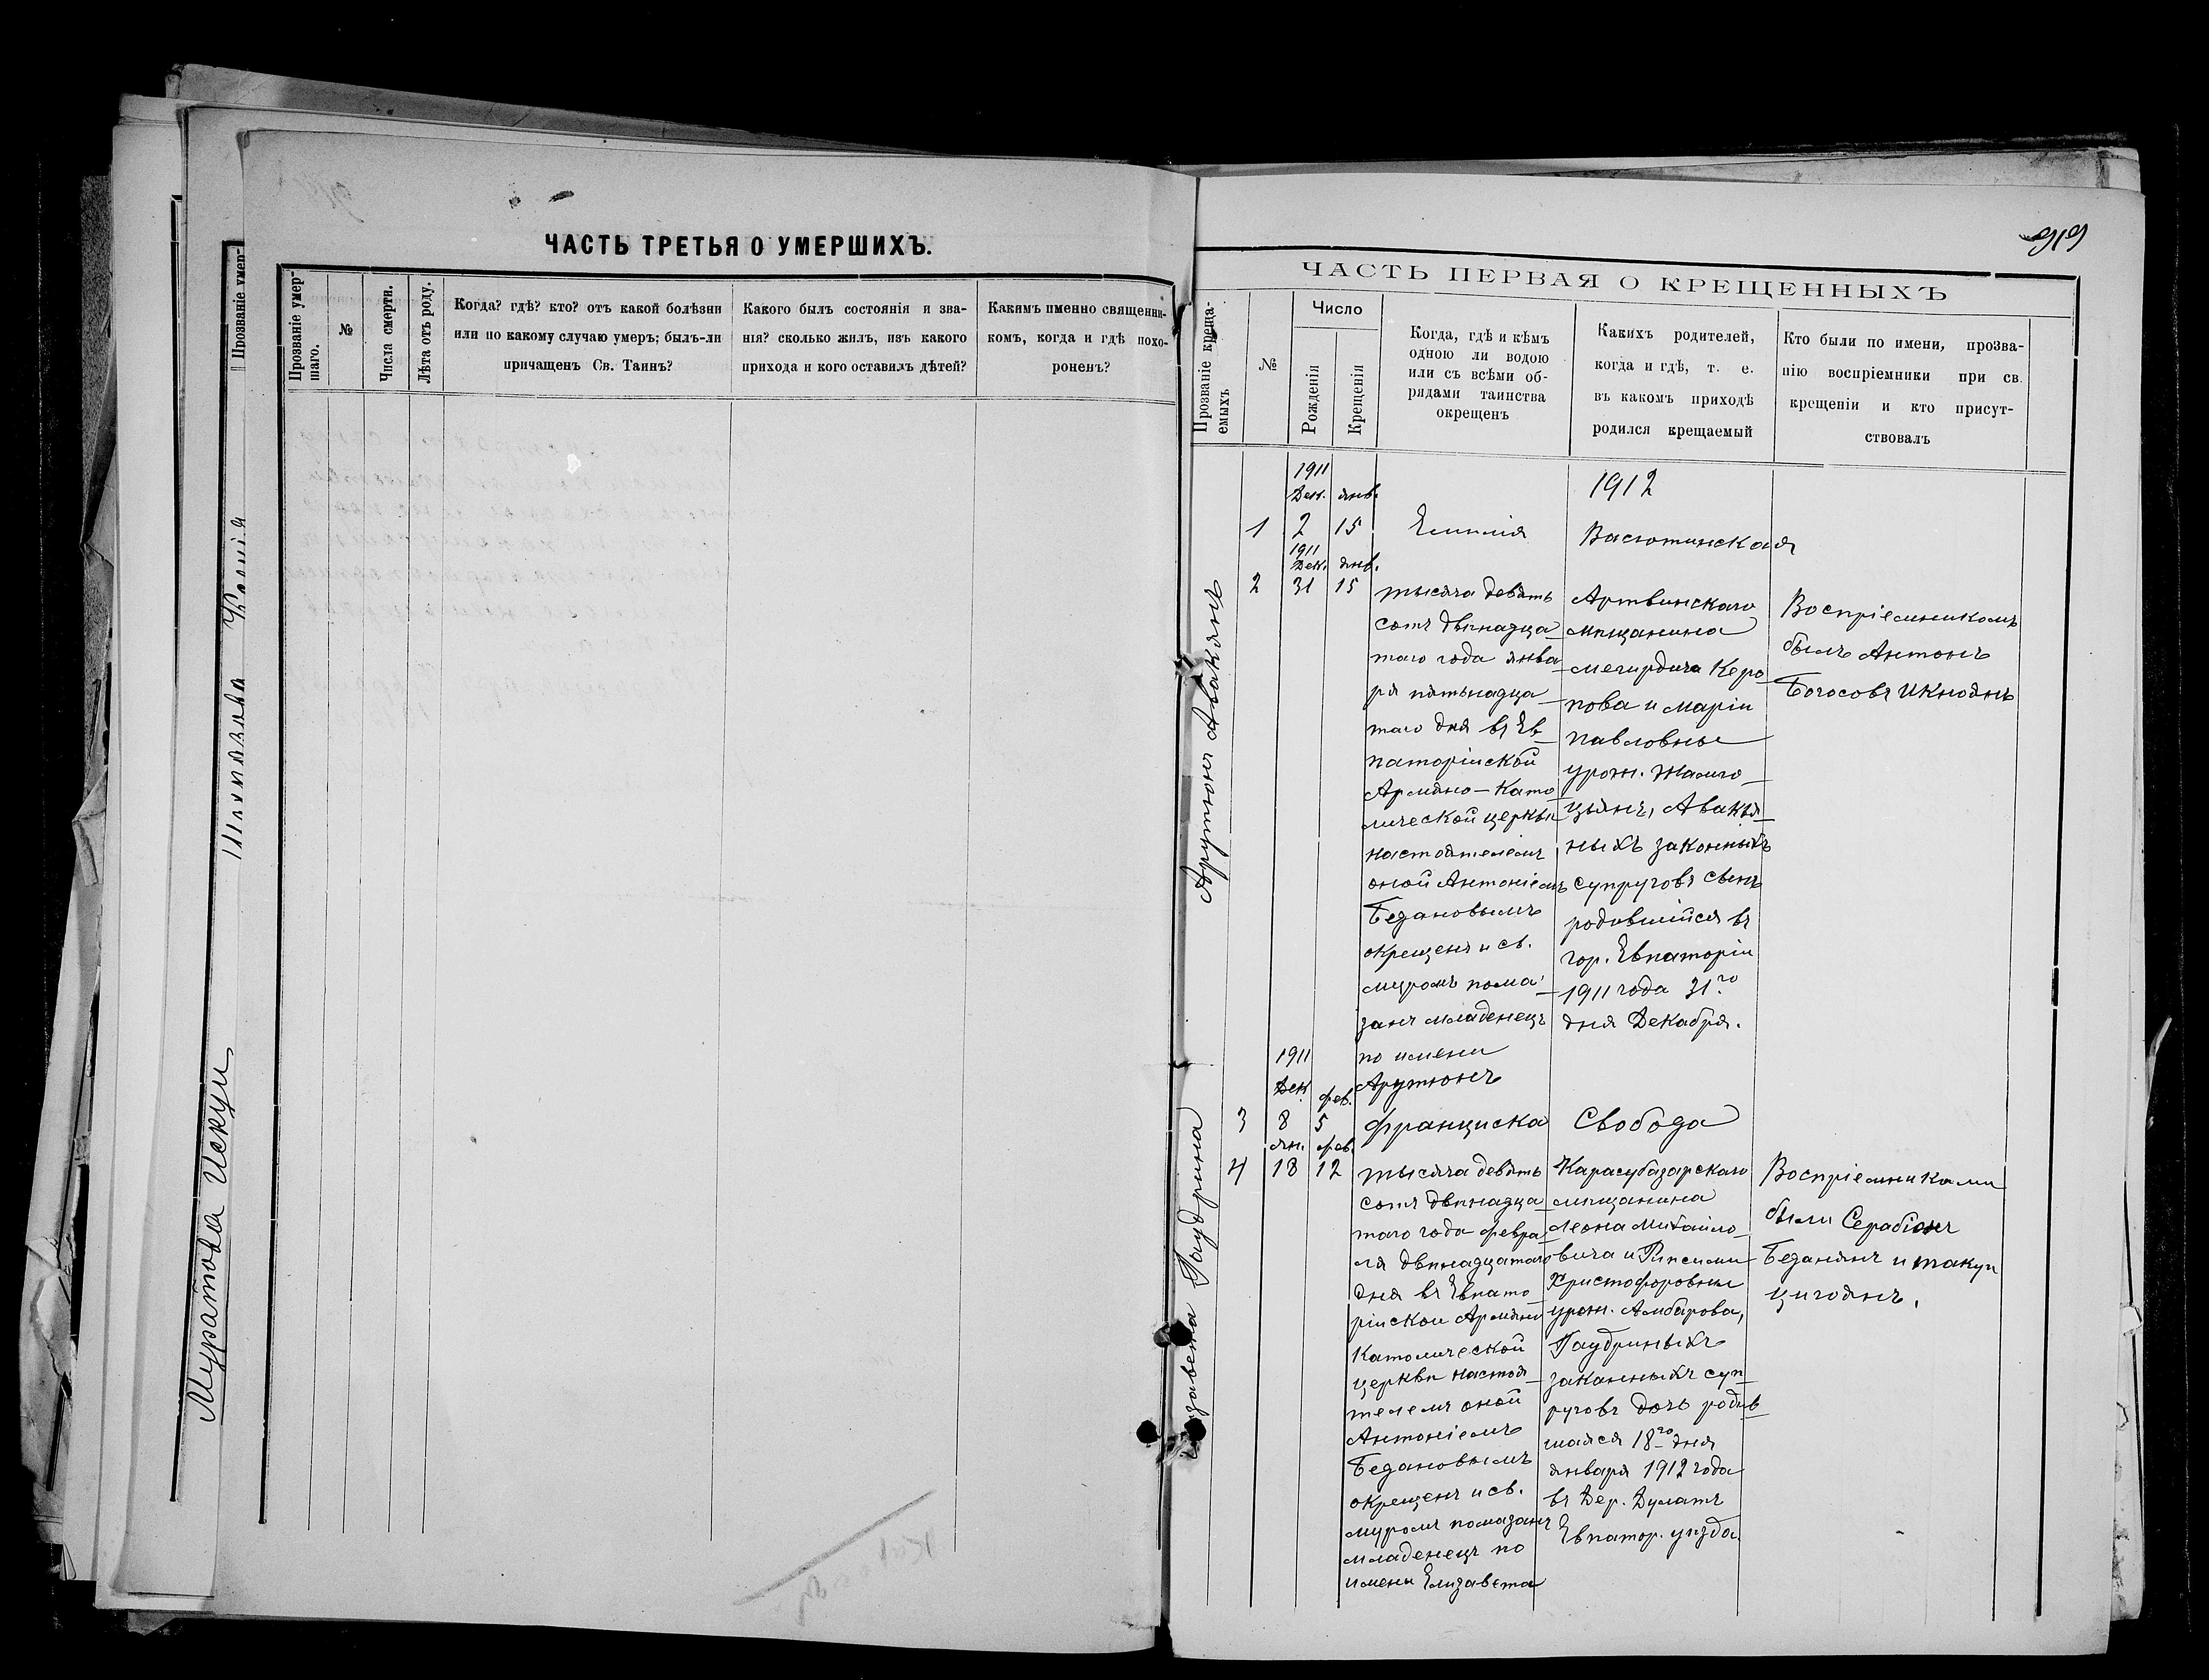 Прозваніе умер-
Муратова Искуи
ЧАСТЬ ТРЕТЬЯ О УМЕРШИХЪ.
Прозваніе умер-
шаго.
№
Числа смерти.
Лѣта отъ роду.
Когда? гдѣ? кто? отъ какой болѣзни
или по какому случаю умеръ; былъ-ли
причащенъ Св. Таинъ?
Какого былъ состоянія и зва-
нія? сколько жилъ, изъ какого
прихода и кого оставилъ дѣтей?
Какимъ именно священни-
комъ, когда и гдѣ похо-
роненъ?
ЧАСТЬ ПЕРВАЯ О КРЕЩЕННЫХЪ
Прозваніе креща-
емыхъ
№
Число
Рожденія
Крещенія
Когда, гдѣ и кѣмъ
одною ли водою
или съ всѣми об-
рядами таинства
окрещенъ
Какихъ родителей,
когда и гдѣ, т. е.
въ какомъ приходѣ
родился крещаемый
Кто были по имени, прозва-
нію воспріемники при св.
крещеніи и кто присут-
ствовалъ
1912
1911
Дек. янв.
1 2 15 Емилія Васютинская
1911
Дек. янв.
2 31 15
Арутюнъ Авакянъ
тысяча девять
сотъ двѣнадца
таго года янва
ря пятьнадца
таго дня въ Ев
паторійской
Армяно-Като
лической церкви
настоятелемъ
оной Антоніемъ
Бедановымъ
окрещенъ и св.
муромъ пома
занъ младенецъ
по имени
Арутюнъ
Артвинскаго
мѣщанина
Мегирдича Керо
пова и Маріи
Павловны
урож. Жамго
цьянъ, Авакья
ныхъ законныхъ
супруговъ сынъ
родившійся въ
гор. Евпаторіи
1911 года 31го
дня Декабря.
Воспріемникомъ
былъ Антонъ
Богосовъ Икноянъ
1911
Дек. фев.
3 8 5 Франциска Свобода
ян. фев.
4 18 12
Елизавета Гаудрина
тысяча девять
сотъ двѣнадца
таго года февра
ля двѣнадцатаго
дня въ Евпато
рійской Армяно
Католической
церкви настоя
телемъ оной
Антоніемъ
Бедановымъ
окрещенъ и св.
муромъ помазанъ
младенецъ по
имени Елизавета
Карасубазарскаго
мѣщанина
Леона Михайло
вича и Рипсими
Христофоровны
урож. Амбарова,
Гаудриныхъ
законныхъ суп
руговъ дочь родив
шаяся 18го дня
января 1912 года
въ Дер. Дулатъ
Евпатор. уѣзда.
Воспріемниками
были Серабіонъ
Беданянъ и Такуи
Цигоянъ.